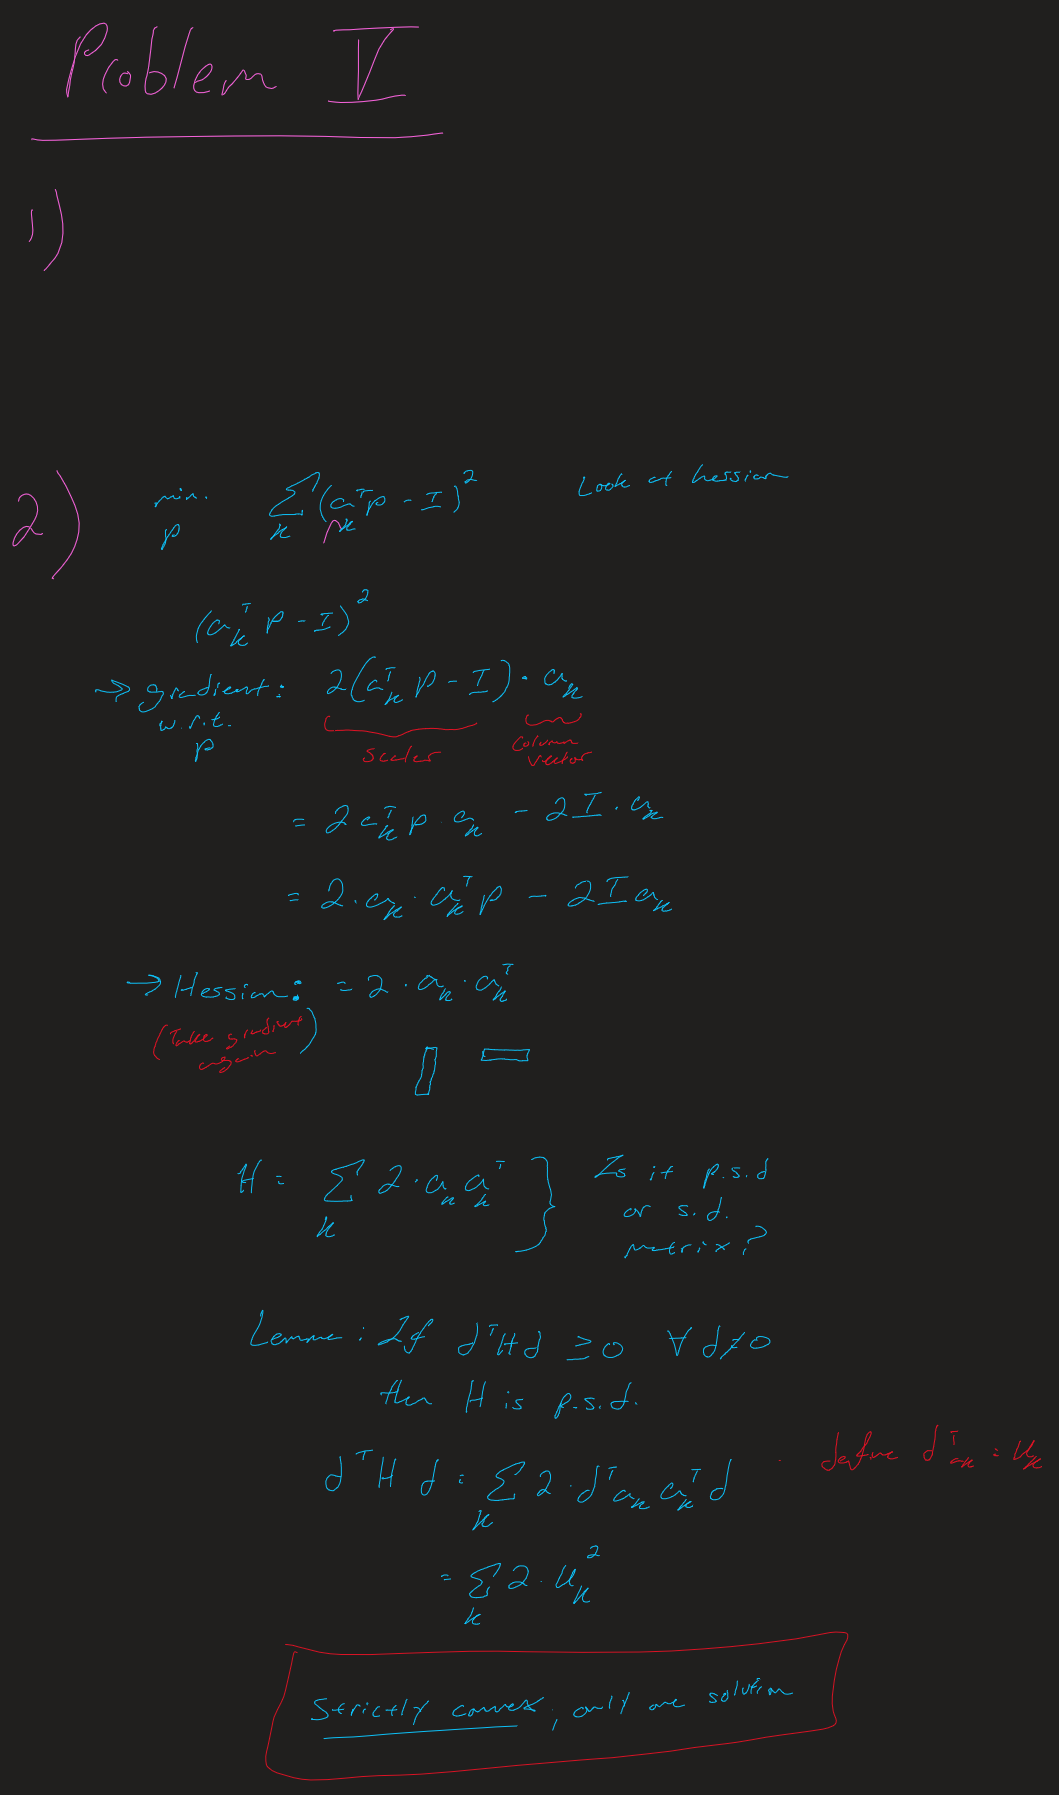 Problem V
1)
2) min. p ∑_k (a_k^T p - I)^2 Look at hessian
(a_k^T p - I)^2
→ gradient: 2(a_k^T p - I) · a_k
w.r.t. p
scaler column vector
= 2 a_k^T p · a_k - 2I · a_k
= 2 · a_k · a_k^T p - 2I a_k
→ Hessian: = 2 · a_k · a_k^T
(Take gradient again)
H = ∑_k 2 · a_k a_k^T } Is it p.s.d
or s.d.
matrix?
Lemma: If d^T H d ≥ 0 ∀ d ≠ 0
then H is p.s.d.
d^T H d = ∑_k 2 · d^T a_k a_k^T d · define d^T a_k = u_k
= ∑_k 2 · u_k^2
Strictly convex, only one solution